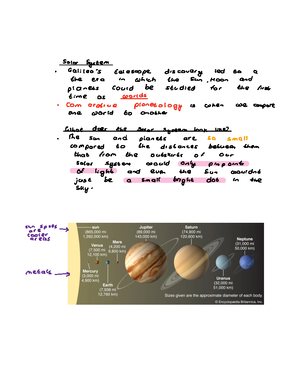 Solar System
• Galileo's telescope discovery led to a
the era in which the Sun, Moon and
planets could be studied for the first
time as worlds
• Comparative planetology is when we compare
one world to another
What does the Solar System look like?
• The sun and planets are so small
compared to the distances between them
that from the outskirts of our
solar system would only pinpoints
of light and even the Sun wouldn't
just be a small bright dot in the
sky.
sun spots
are
cooler
areas
metals
sun
(865,000 mi
1,392,000 km)
Venus
(7,500 mi
12,100 km)
Mars
(4,200 mi
6,800 km)
Mercury
(3,000 mi
4,900 km)
Earth
(7,926 mi
12,760 km)
Jupiter
(89,000 mi
143,000 km)
Saturn
(74,900 mi
120,500 km)
Uranus
(32,000 mi
51,500 km)
Neptune
(31,000 mi
50,000 km)
Sizes given are the approximate diameter of each body.
© Encyclopædia Britannica, Inc.